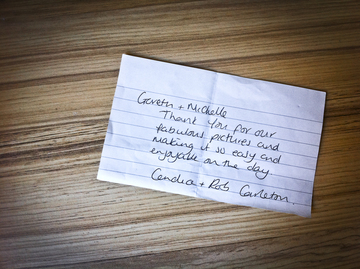 Gareth + Michelle
Thank you for our
fabulous pictures and
making it so easy and
enjoyable on the day.
+ Rob Carleton.